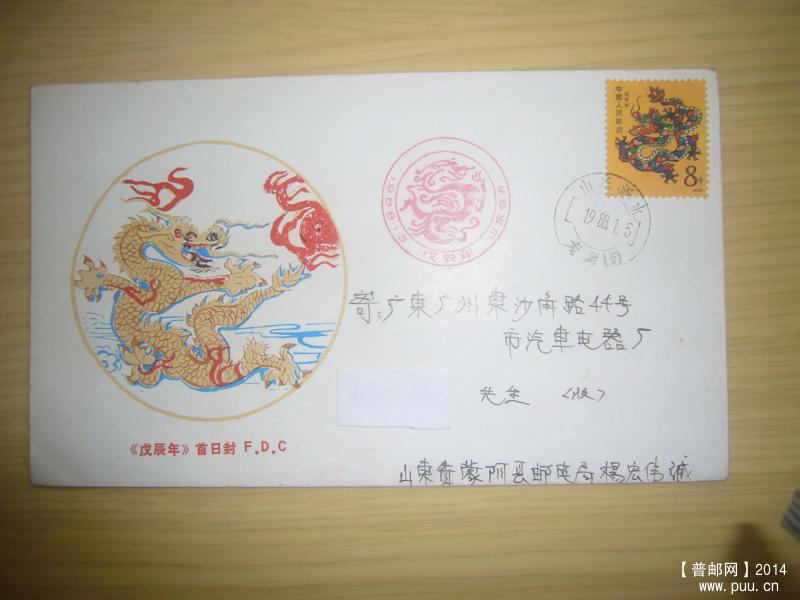 中国人民邮政
戊辰年
8分
1988
1988.1.5
寄:广东广州东沙角路44号
市汽车电器厂
先生 (收)
《戊辰年》首日封 F.D.C
山东省蒙阴县邮电局杨宏伟诚
【普邮网】2014
www.puu.cn